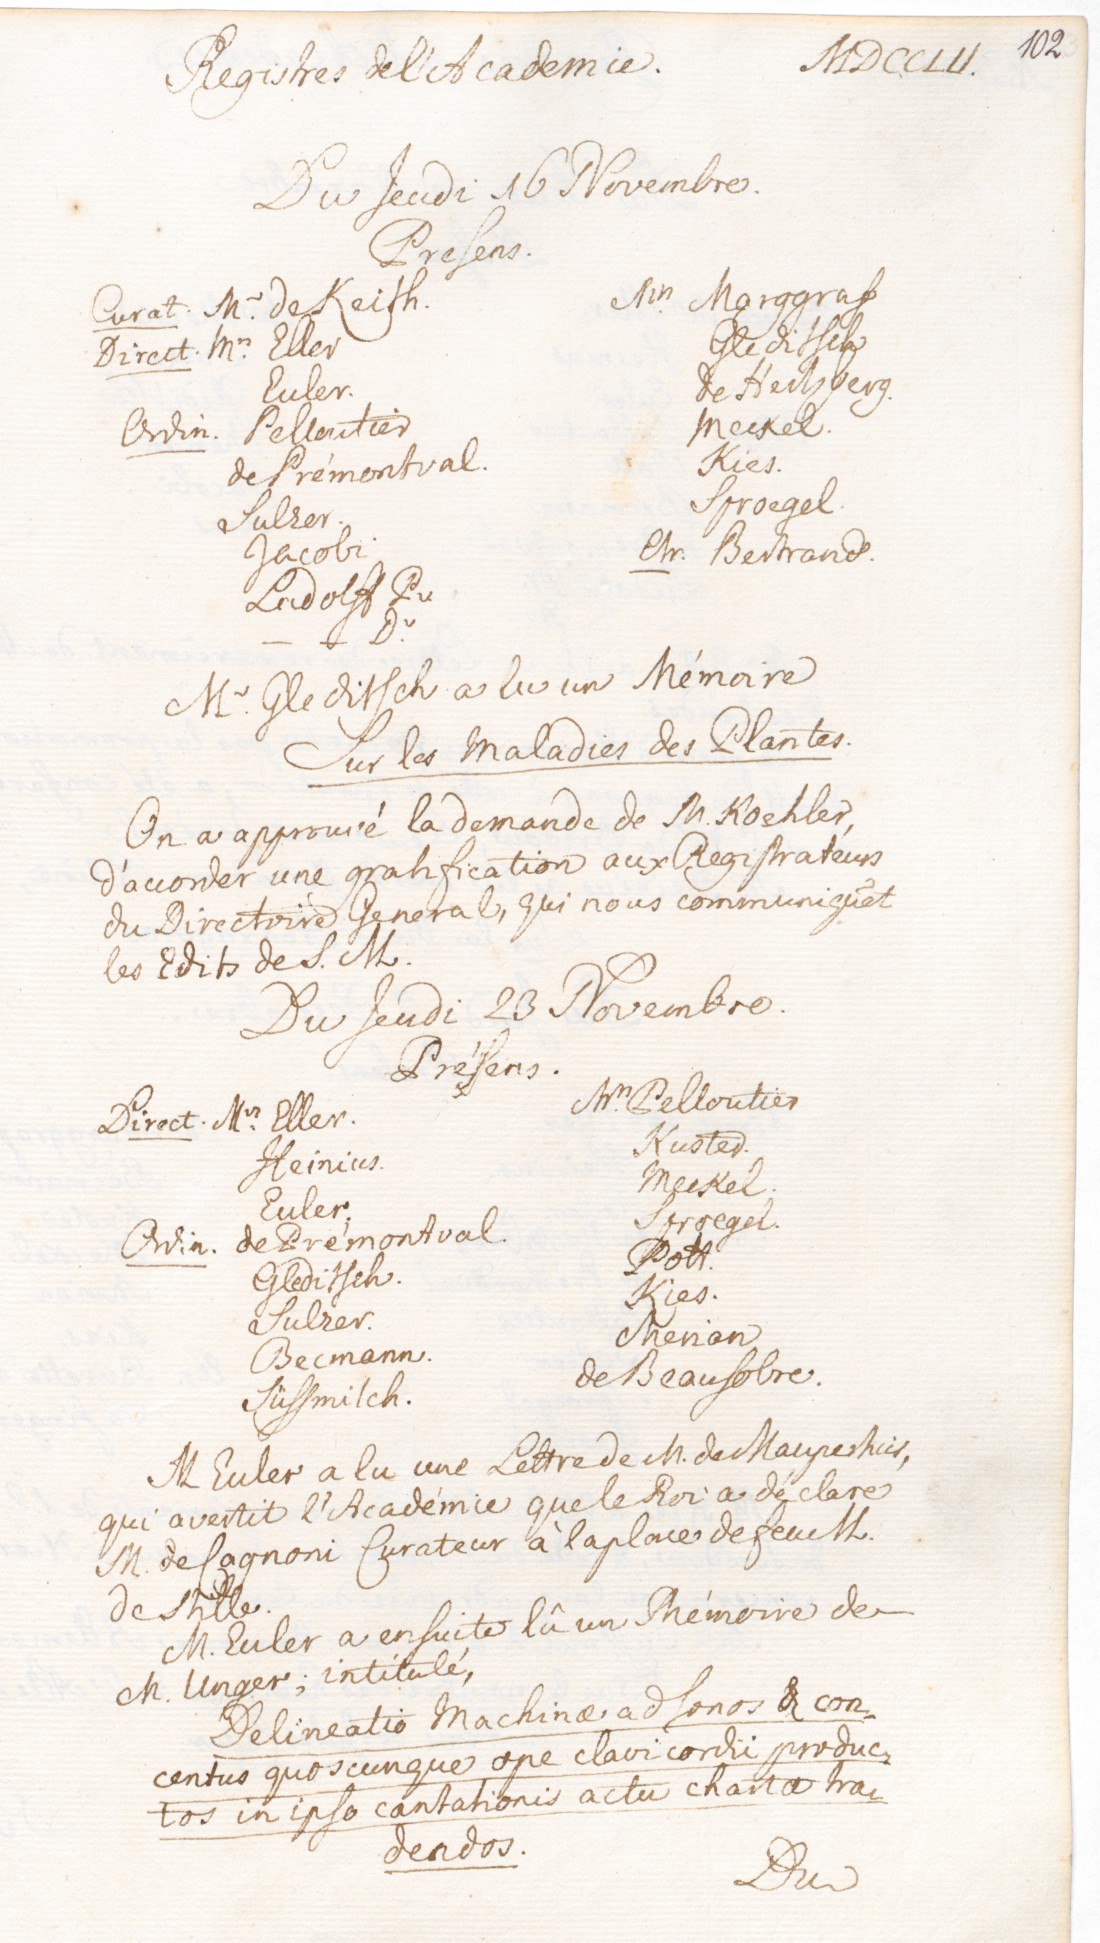 102
Registres de l'Academie. MDCCLII.
Du Jeudi 16 Novembre.
Presens.
Curat. Mr. de Keith.
Direct. Mrs. Eller
Euler.
Ordin. Pelloutier
de Prémontval.
Sulzer.
Jacobi
Ludolff Pr
— — Dr
Mrs. Marggraf
Gleditsch
de Hertsberg.
Meckel.
Kies.
Sproegel.
Etr. Bertrand.
Mr. Gleditsch a lu un Mémoire
Sur les Maladies des Plantes.
On a approuvé la demande de M. Koehler,
d'accorder une gratification aux Registrateurs
du Directoire General, qui nous communiquēt
les Edits de S. M.
Du Jeudi 23 Novembre.
Présens.
Direct. Mrs. Eller.
Heinius.
Euler.
Ordin. de Prémontval.
Gleditsch.
Sulzer.
Becmann.
Süssmilch.
Mrs. Pelloutier
Kuster.
Meckel.
Sproegel.
Pott.
Kies.
Merian
de Beausobre.
M Euler a lu une Lettre de M. de Maupertuis,
qui avertit l'Académie que le Roi a déclare
M. de Cagnoni Curateur à la place de feu M.
de Stille.
M. Euler a ensuite lû un Mémoire de
M. Unger; intitulé,
Delineatio Machinæ ad sonos & con-
centus quoscunque ope clavicordii produc-
tos in ipso cantationis actu chartæ tra-
dendos.
Du